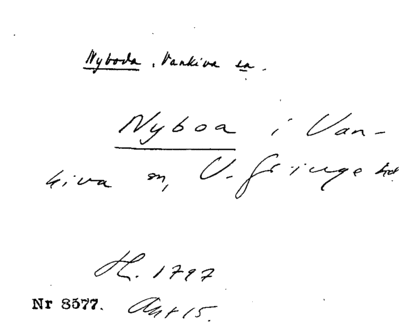 Nyboda, Vankiva sn.
Nyboa i Van-
kiva sn, V. Göinge hd.
H. 1797
Nr 8577. Ant 15.